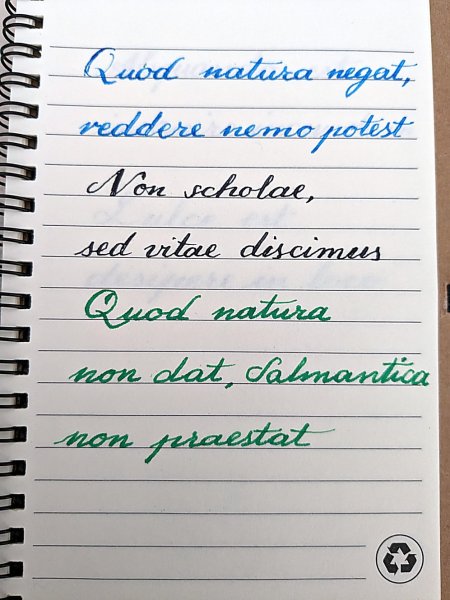 Quod natura negat,
reddere nemo potest
Non scholae,
sed vitae discimus
Quod natura
non dat, Salmantica
non praestat